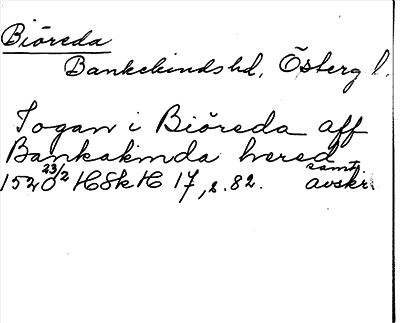 Biöreda
Bankekinds hd, Österg l.
Togan i Biöreda aff
Bankakinda hered
1520 23/2 HSkH 17, s. 82. samt. avskr.